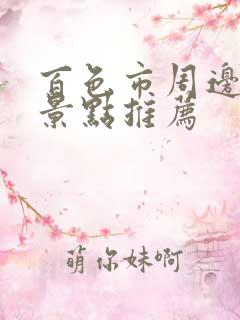 百色市周邊
景點推薦
萌你妹啊